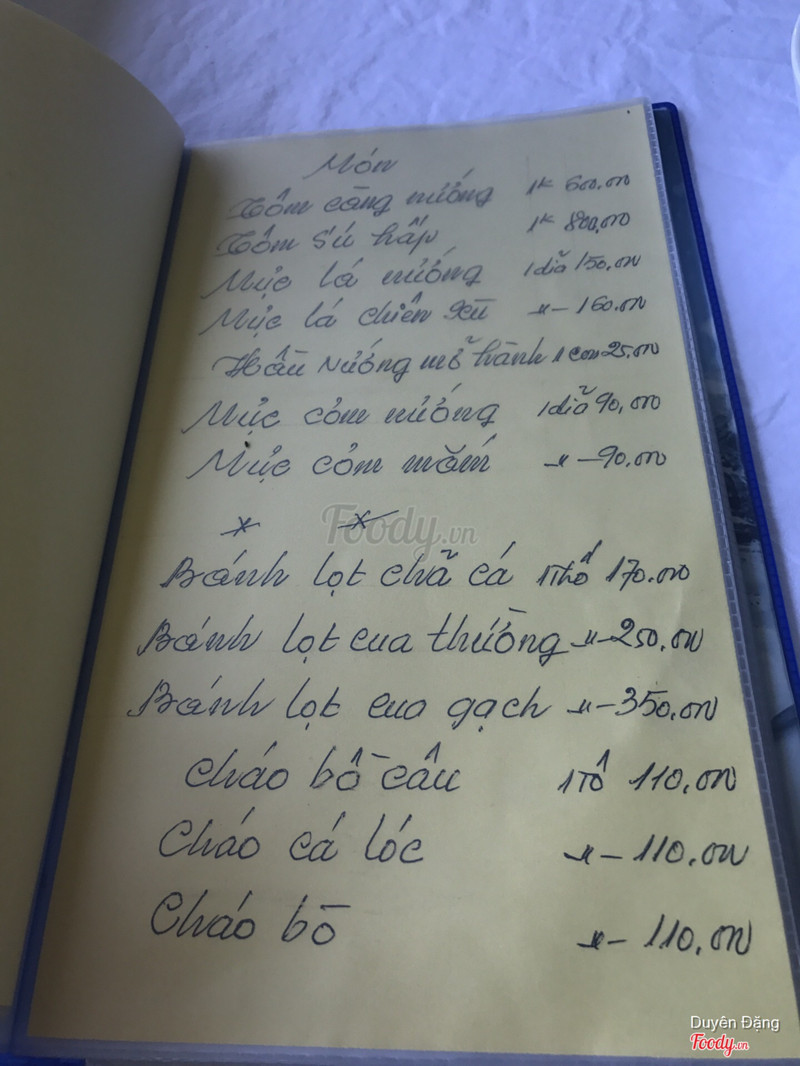 Món
Tôm càng nướng 1K 600.000
Tôm sú hấp 1K 800.000
Mực lá nướng 1 dĩa 150.000
Mực lá chiên xù -"- 160.000
Hầu Nướng mỡ hành 1 con 25.000
Mực cơm nướng 1 dĩa 90.000
Mực cơm mắm -"- 90.000
Foody.vn
Bánh lọt chả cá 1 thố 170.000
Bánh lọt cua thường -"- 250.000
Bánh lọt cua gạch -"- 350.000
Cháo bồ câu 1 Tô 110.000
Cháo cá lóc -"- 110.000
Cháo bò -"- 110.000
Duyên Đặng
Foody.vn